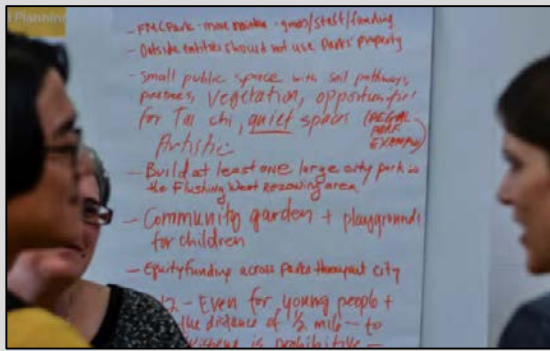 Planning
- FMCPark - more - green/staff/funding
- Outside entities should not use Parks' property
- small public space with soil pathways,
vegetation, opportunities
for Tai chi, quiet spaces (REGAL
PARK
EXAMPLE)
Artistic
- Build at least one large city park in
the Flushing West Rezoning area
- Community garden + playgrounds
for children
- Equity funding across Parks throughout city
- Even for young people +
the distance of 1/2 mile - to
is prohibitive -